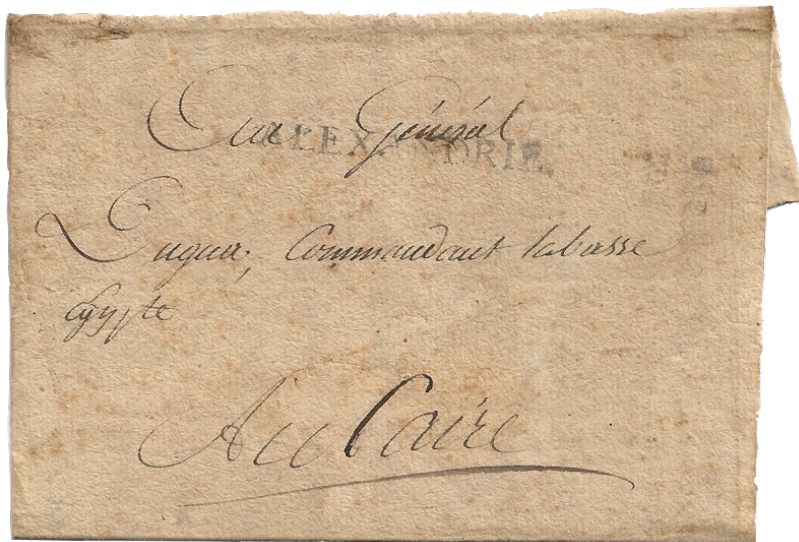 Au Général
ALEXANDRIE.
Dugua, Commandant la basse
Egypte
Au Caire